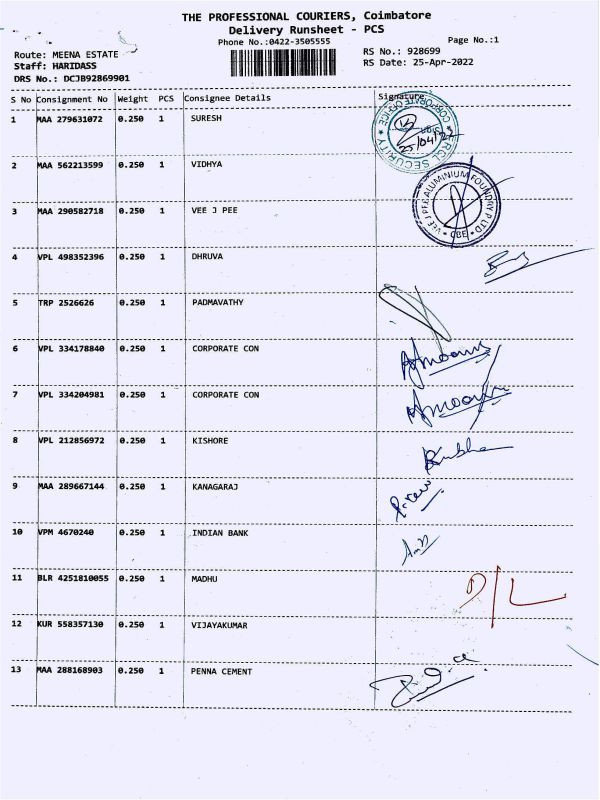 THE PROFESSIONAL COURIERS, Coimbatore
Delivery Runsheet - PCS
Phone No.:0422-3505555
Page No.:1
Route: MEENA ESTATE
RS No.: 928699
Staff: HARIDASS
RS Date: 25-Apr-2022
DRS No.: DCJB92869901
S No Consignment No Weight PCS Consignee Details Signature
1 MAA 279631072 0.250 1 SURESH
CORPORATE OFFICE
Sign
25/04/22
SECURITY
2 MAA 562213599 0.250 1 VIDHYA
VEE J PEE ALUMINIUM FOUNDRY P LTD
CBE
3 MAA 290582718 0.250 1 VEE J PEE
4 VPL 498352396 0.250 1 DHRUVA
5 TRP 2526626 0.250 1 PADMAVATHY
6 VPL 334178840 0.250 1 CORPORATE CON
7 VPL 334204981 0.250 1 CORPORATE CON
8 VPL 212856972 0.250 1 KISHORE
9 MAA 289667144 0.250 1 KANAGARAJ
10 VPM 4670240 0.250 1 INDIAN BANK
11 BLR 4251810055 0.250 1 MADHU
D/L
12 KUR 558357130 0.250 1 VIJAYAKUMAR
13 MAA 288168903 0.250 1 PENNA CEMENT